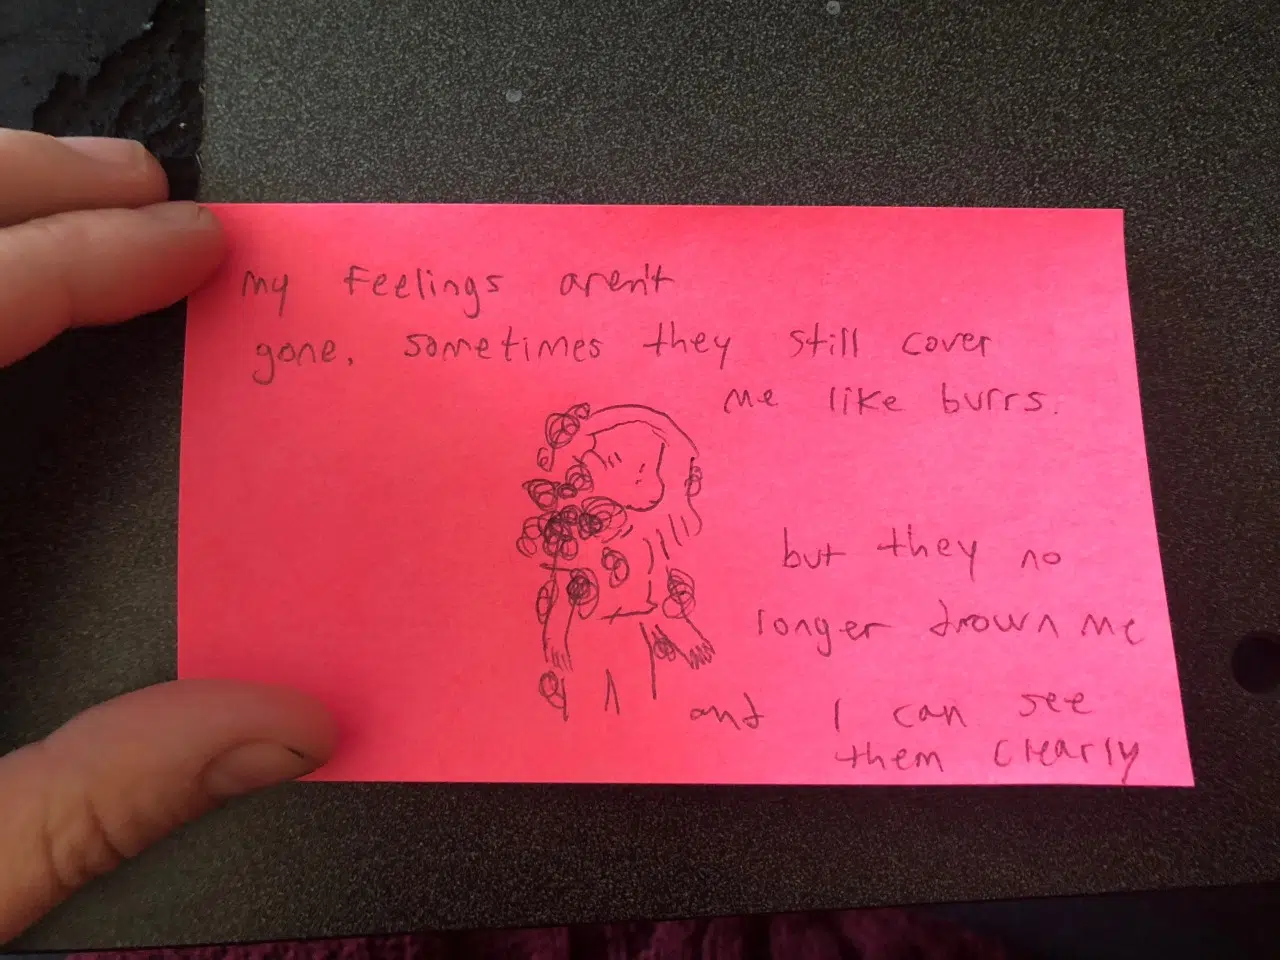 my feelings aren't
gone. sometimes they still cover
me like burrs.
but they no
longer drown me
and I can see
them clearly